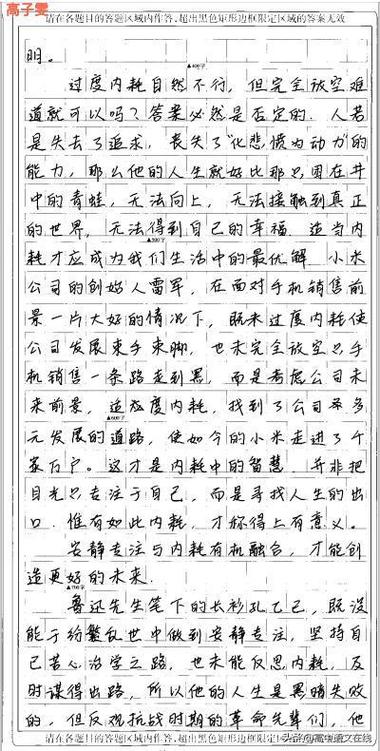 高子雯
请在各题目的答题区域内作答,超出黑色矩形边框限定区域的答案无效
明。
▲400字
过度内耗自然不行，但完全放空难
道就可以吗？答案必然是否定的。人若
是失去了追求，丧失了“化悲愤为动力”的
能力，那么他的人生就好比那只困在井
中的青蛙，无法向上，无法接触到真正
的世界，无法得到自己的幸福。适当内
▲500字
耗才应成为我们生活中的最优解。小米
公司的创始人雷军，在面对手机销售前
景一片大好的情况下，既未过度内耗使
公司发展束手束脚，也未完全放空只手
机销售一条路走到黑，而是考虑公司未
来前景，适度内耗，找到了公司多
▲600字
元发展的道路，使如今的小米走进了千
家万户。这才是内耗中的智慧，并非把
目光只专注于自己，而是寻找人生的出
口。惟有如此内耗，才称得上有意义。
安静专注与内耗有机融合，才能创
造更好的未来。
▲700字
鲁迅先生笔下的长衫孔乙己，既没
能于纷繁乱世中做到安静专注，坚持自
己苦心治学之路，也未能反思内耗，及
时谋得出路，所以他的人生是黑暗失败
的，但反观抗战时期的革命先辈们，他
请在各题目的答题区域内作答,超出黑色矩形边框限定区域的答案无效
头条@高中语文在线